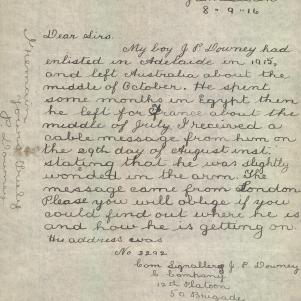 8-9-16
Dear Sirs.
My boy J. P. Downey had
enlisted in Adelaide in 1915,
and left Australia about the
middle of October. He spent
some months in Egypt then
he left for France about the
middle of July I received a
cable message from him on
the 29th day of August inst.
stating that he was slightly
wonded in the arm. The
message came from London
Please you will oblige if you
could find out where he is
and how he is getting on.
His address was
No 2292
Com Signallers J. P. Downey
C Company
12th Platoon
50 Brigade
I remain
yours truly
P Downey